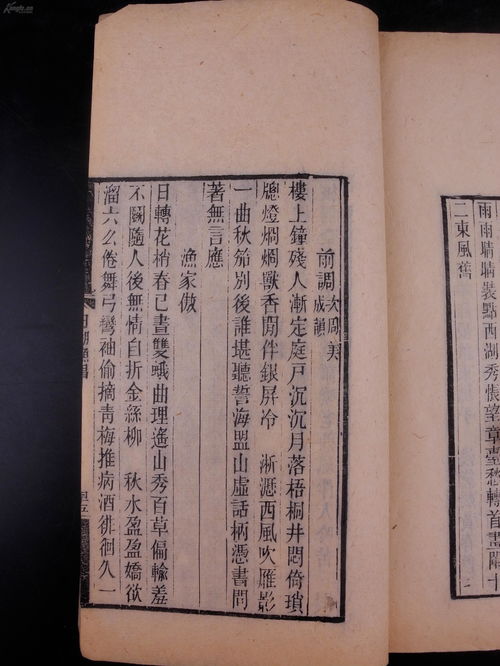 雨雨晴晴裝點西湖秀悵望章臺愁轉首畫闌十
二東風舊
前調 次周美
成韻
樓上鐘殘人漸定庭戶沉沉月落梧桐井悶倚瑣
牕燈烱烱獸香閒伴銀屏冷　淅瀝西風吹雁影
一曲秋笳別後誰堪聽誓海盟山虛話柄憑書問
著無言應
漁家傲
日轉花梢春已晝雙蛾曲理遙山秀百草偏輸羞
不鬭隨人後無情自折金絲柳　秋水盈盈嬌欲
溜六么倦舞弓彎袖偷摘青梅推病酒徘徊久一
日湖漁唱